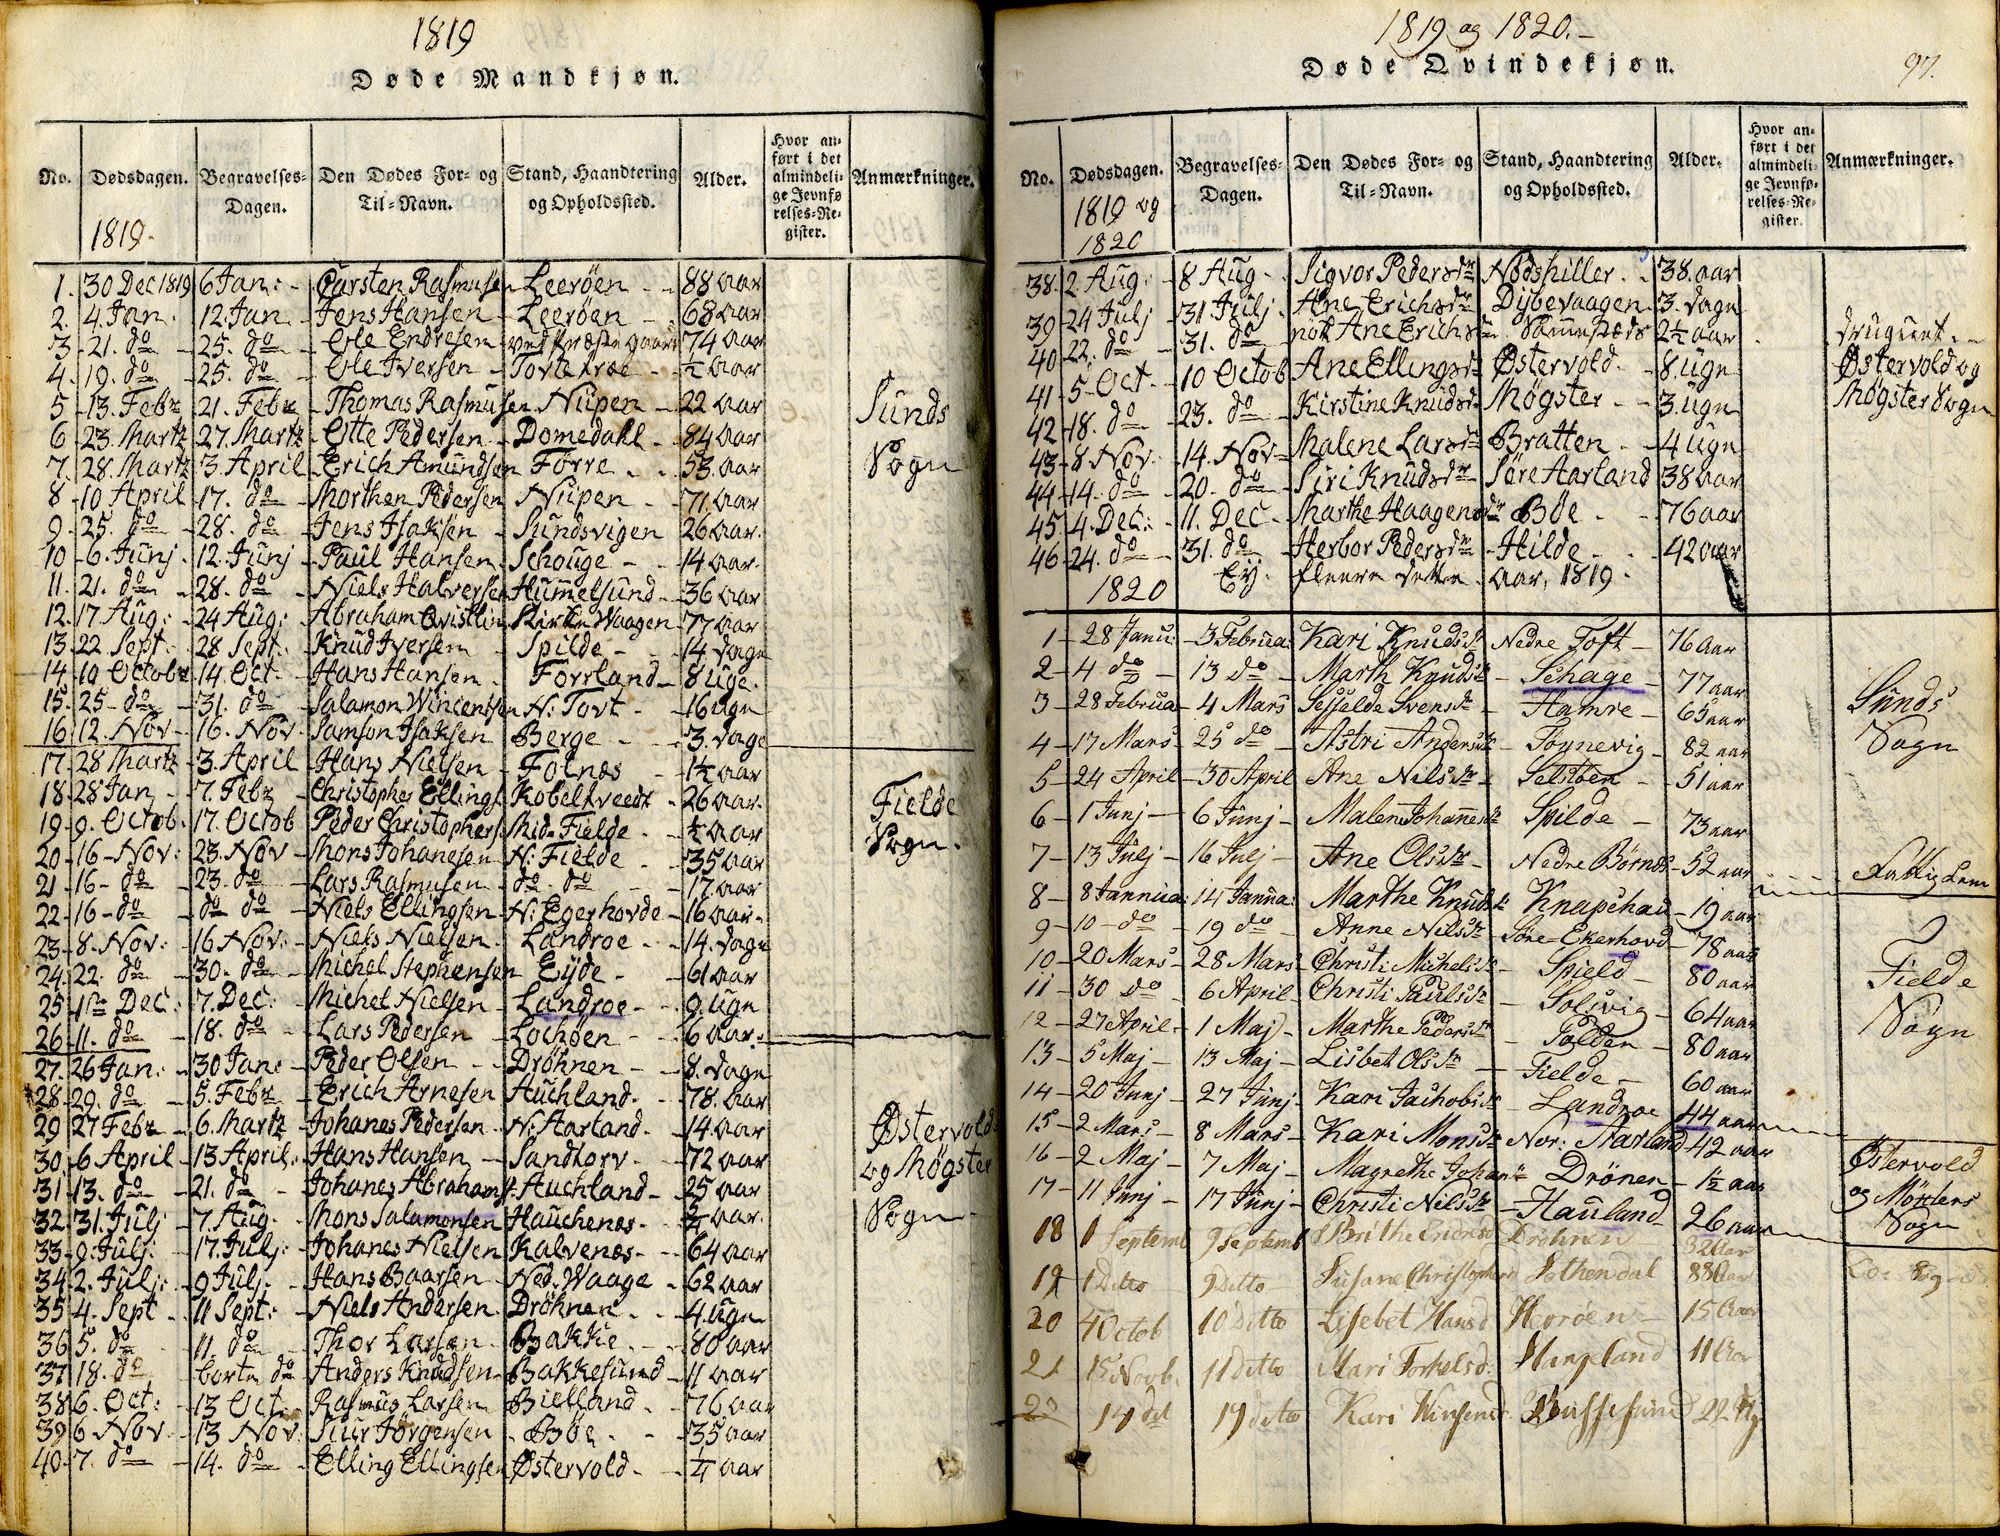 1819
Døde Mandkjøn.
No.
Dødsdagen.
1819.
Begravelses-
Dagen.
Den Dødes For- og
Til-Navn.
Stand, Haandtering
og Opholdssted.
Alder.
Hvor an-
ført i det
almindeli-
ge Jevnfø
relses-Re-
gister.
Anmærkninger.
1. 30 Dec 1819 6 Jan: Carsten Rasmusen Leeröen 88 aar
2. 4. Jan. 12. Jan. Jens Hansen Leeröen 68 aar
3 21. do 25. do Ole Endresen ved Præstegaard 74 aar
4. 19. do 25. do Ole Iversen Tofteroe ½ aar
5 13. Febr 21. Febr Thomas Rasmusen Nüpen 22 aar
6 23. Martz 27. Martz Otte Pedersen Domedahl 84 aar
7. 28. Martz 3. April Erich Amundsen Førre 53 aar
8 10 April 17. do Morthen Pedersen Nüpen 71. aar
9 25. do 28. do Jens Isaksen Sundsvigen 26 aar.
10 6. Junj 12. Junj Paul Hansen Schouge 14 aar.
11. 21. do 28. do Niels Halversen Hummelsund 36 aar
12. 17 Aug: 24 Aug: Abraham Qvistlin Kirke Waagen 77 aar
13. 22 Sept. 28 Sept: Knud Iversen Spilde 14 dage
14 10 Octobr 14. Oct Hans Hansen Forrland 8 uge.
15. 25 do 31. do Salamon Wincentsen N: Tovt 16 ugn
16 12. Nov 16. Nov Samson Isaksen Berge 3. dage
Sunds
Sogn
17. 28 Martz 3. April Hans Nielsen Folnæs 1½ aar
18. 28 Jan 7. Febr Christopher Ellings. Kobeltvedt 26 aar.
19. 9. Octob. 17. Octob Peder Christophers. Mid-Fielde ½ aar
20 16 Nov: 23. Nov Mons Johanesen N: Fielde 35 aar
21 16 do 23. do Lars Rasmusen do do 17. aar
22 16 do do do Niels Ellingsen N: Egerhovde 16 aar
23 8. Nov: 16 Nov: Niels Nielsen Landroe 14. dage
24. 22. do 30. do Michel Stephensen Eyde 61 aar
25 1ste Dec: 7. Dec: Michel Nielsen Landroe 9. ugn
26 11. do 18. do Lars Pedersen Lochöen 6 aar.
Fielde
Sogn.
27. 26 Jan: 30 Jan: Peder Olsen Dröhnen 8. dage
28 29. do 5. Febr Erich Arnesen Auchland 78. aar
29 27 Febr 6. Martz Johanes Pedersen N: Aarland 14. aar
30 6 April 13 April Hans Hansen Sandtorv 72 aar
31 13. do 21. do Johanes Abrahams. Auchland 25 aar
32 31. Julj 7. Aug. Mons Salamonsen Hauchenæs aar.
33 9. Julj 17. Julj: Johanes Nielsen Kalvenæs 64 aar
34 2. Julj: 9 Julj. Hans Baarsen Ned. Waage 62 aar
35 4. Sept 11 Sept: Niels Andersen Dröhnen 4. ugn
36 5. do 11. do Thor Larsen Bakke 80 aar
37 18. do borte do Anders Knudsen Bakkesund 11 aar
38 6. Oct: 13 Oct: Rasmus Larsen Bielland 76 aar
39 6 Nov 13 Nov Siur Jørgensen Bøe 35 aar
40 7. do 14. do Elling Ellingsen Østervold ¼ aar
Østervold
og Møgster
Sogn
1819 og 1820.
Døde Qvindekjøn.
97.
No.
Dødsdagen.
1819 og
1820
Begravelses-
Dagen.
Den Dødes For- og
Til-Navn.
Stand, Haandtering
og Opholdssted.
Alder.
Hvor an-
ført i det
almindeli-
ge Jevnfø-
relses-Re-
gister.
Anmærkninger.
38. 2 Aug: 8 Aug. Sigvor Pedersdr Nødshiller 38. aar
39 24 Julj 31 Julj. Ane Erichsdr Dybevaagen 3. dage
40 22. do 31. do nok Ane Erichsdr Sammesteds 2½ aar drugnet
41 5 Oct. 10 Octob Ane Ellingsdr Østervold 8. ugn
42 18. do 23. do Kirstine Knudsdr Møgster 3. ugn
43 8 Nov. 14. Nov Malene Larsdr Bratten 4 ugn
44 14. do 20. do Siri Knudsdr Søre Aarland 38 aar
45. 4. Dec: 11. Dec Marthe Haagensdr Bøe 76 aar
46 24. do 31. do Herbor Pedersdr Hilde 42 aar
Østervold og
Møgster Sogn
1820 Ey. fleere dette aar, 1819.
1 28 Janu: 3 Februa: Kari Knudsdr Nedre Toft 76 aar
2 4 do 13 do Marth Knudsdr Schage 77 aar
3 28 Februa 4 Mars Sesselde Svensdr Hamre 65 aar
4 17 Mars 25 do Astri Andersdr Sognevig 82 aar
5 24 April 30 April Ane Nilsdr Selsten 51 aar
6 1 Junj 6 Junj Malen Johannesdr Spilde 73 aar
7 13 Julj 16 Julj Ane Olsdr Nedre Børnæs 52 aar Fattig Lem
Sunds
Sogn
8 8 Jannua: 14 Janna: Marthe Knudsdr Knapshau 19 aar
9 10 do 19 do Anne Nilsdr Søre-Ekerhovd 78 aar
10 20 Mars 28 Mars Christi Michelsdr Spield 80 aar
11 30 do 6 April Christi Paulsdr Solsvig 64 aar
12 27 April 1 Maj Marthe Pedersdr Polden 80 aar
13 5 Maj 13 Maj Lisbet Olsdr Fielde 60 aar
14 20 Junj 27 Junj Kari Jachobsdr Landroe 44 aar
Fielde
Sogn
15 2 Mars 8 Mars Kari Monsdr Nor: Aarland 42 aar
16 2 Maj 7 Maj Magrethe Johan Drönen 1½ aar
17 11 Junj 17 Junj Christi Nilsdr Hauland 26 aar
Østervold
og Møxters
Sogn
18 1 Septemb 9 Septemb Brithe Ericksd Dröhnen 32 Aar
19 1 Ditto 9 Ditto Susane Christophersd Sothendal 88 Aar
20 4 Octob 10 Ditto Lisebet Hansd Herröen 15 Aar
21 15 Novb. 11 Ditto Mari Torkelsd. Hangeland 11 Aar
14 det 19 ditto Kari